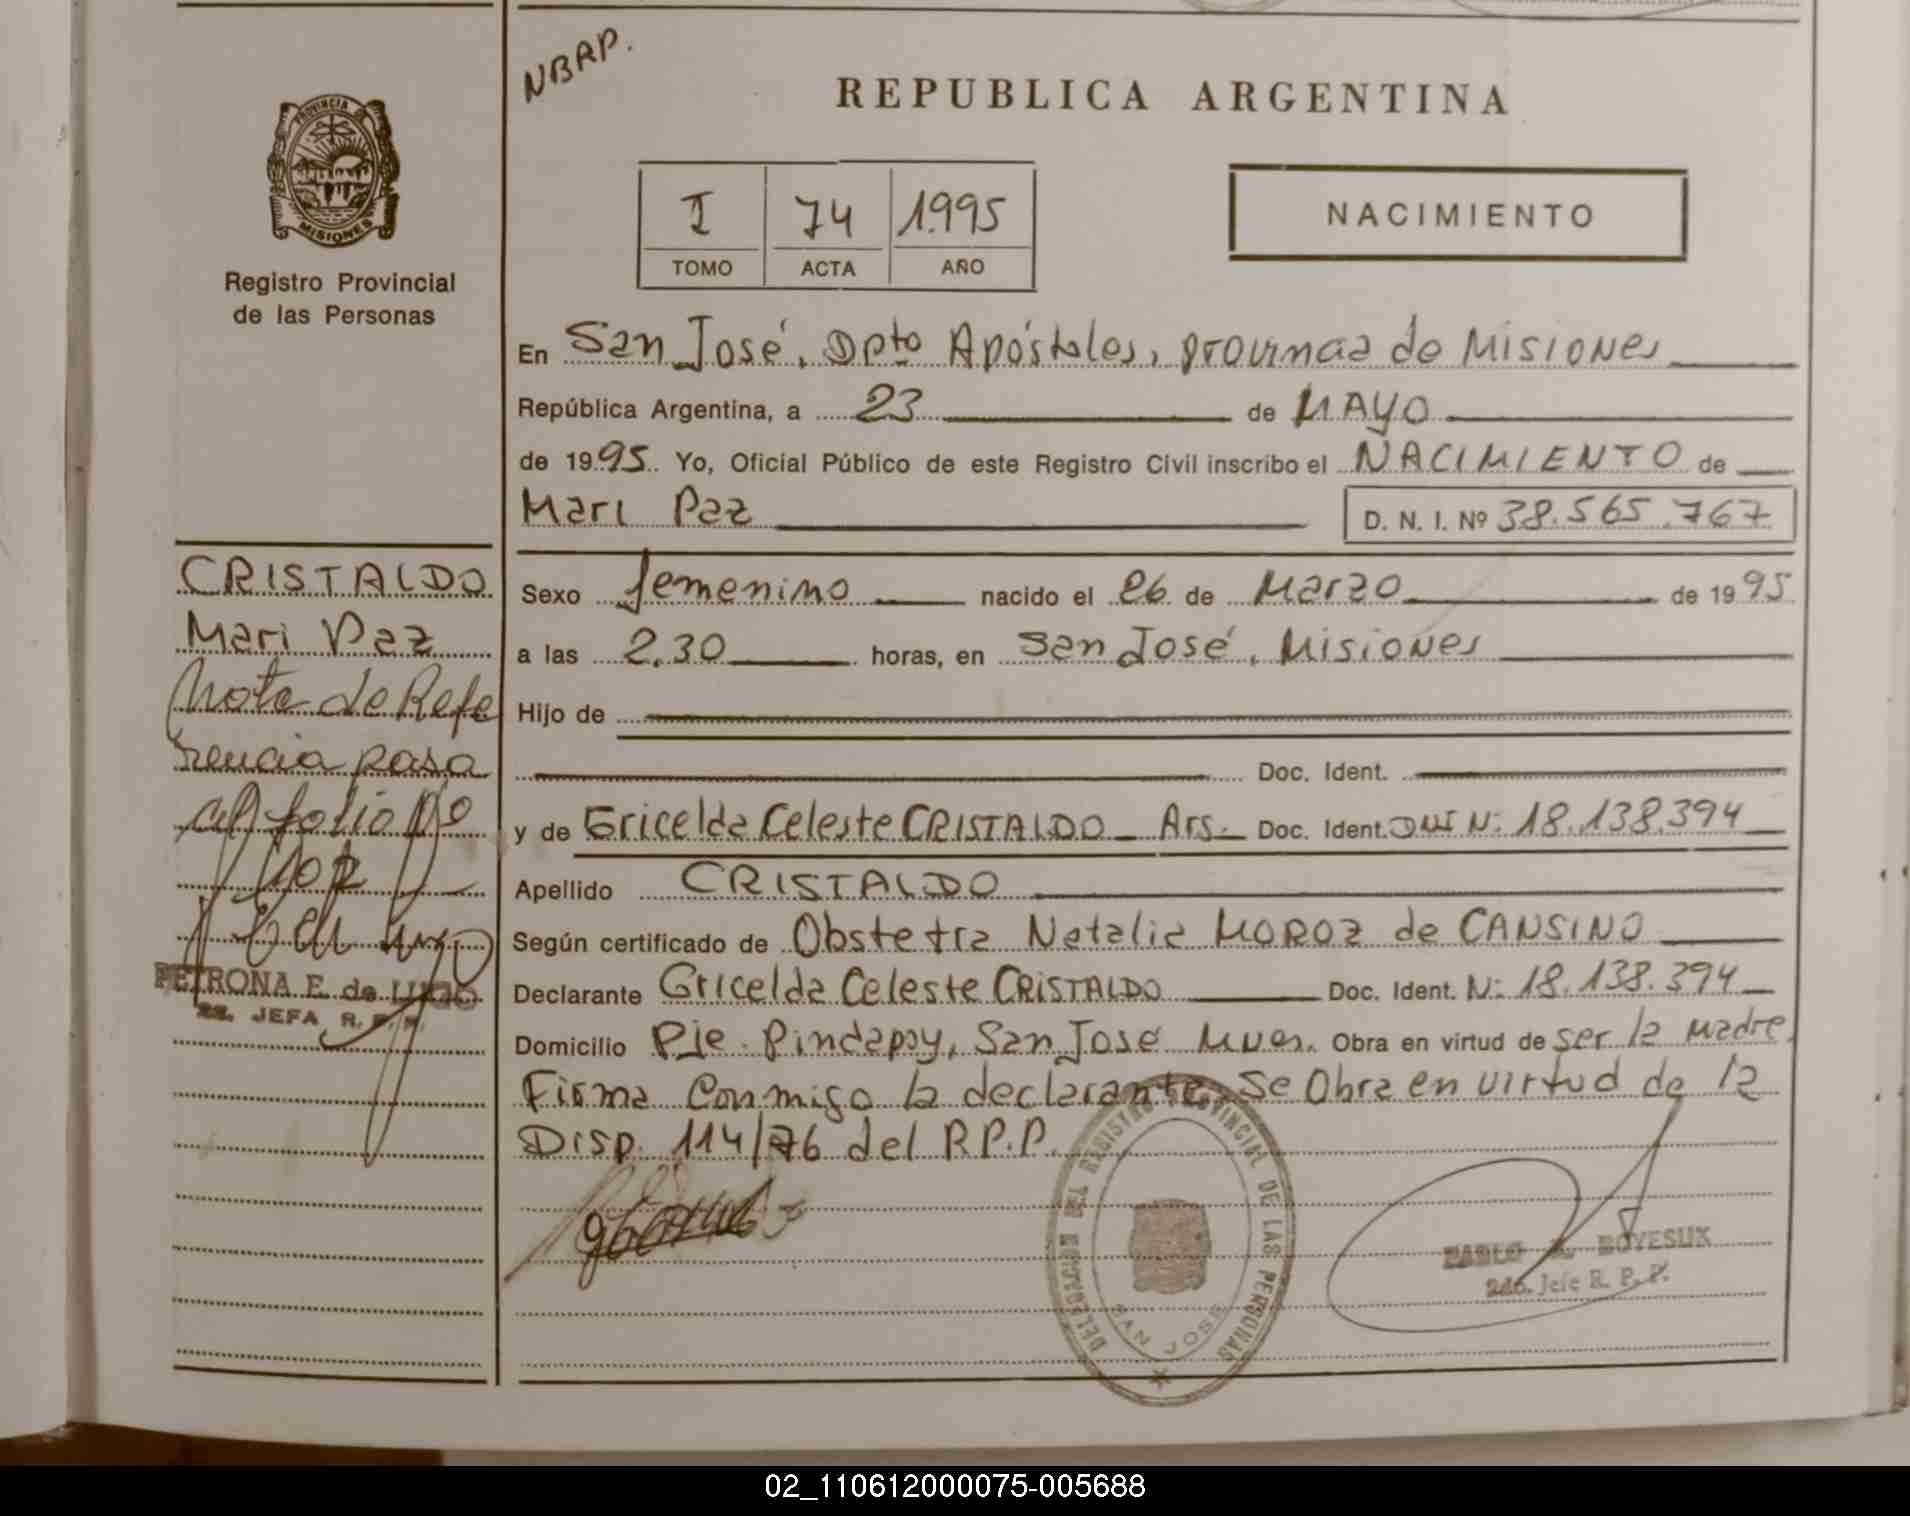 NBRP.
REPUBLICA ARGENTINA
PROVINCIA DE
MISIONES
Registro Provincial
de las Personas
I 74 1995
TOMO ACTA AÑO
NACIMIENTO
En San José, Dpto Apóstoles, provincia de Misiones
República Argentina, a 23 de MAYO
de 1995. Yo, Oficial Público de este Registro Civil inscribo el NACIMIENTO de
Mari Paz D. N. I. Nº 38.565.767
Sexo femenino nacido el 26 de Marzo de 1995
a las 2.30 horas, en San José, Misiones
Hijo de
Doc. Ident.
y de Gricelda Celeste CRISTALDO Arg. Doc. Ident. DNI N: 18.138.394
Apellido CRISTALDO
Según certificado de Obstetra Natalia MOROZ de CANSINO
Declarante Gricelda Celeste CRISTALDO Doc. Ident. N: 18.138.394
Domicilio Pje. Pindapoy, San José Mnes. Obra en virtud de ser la madre.
Firma Conmigo la declarante. Se Obra en virtud de la
Disp. 114/76 del R.P.P.
CRISTALDO
Mari Paz
Nota de Refe
rencia pasa
al folio Nº
102
PETRONA E. de LUJO
2a. JEFA R. P. P.
DEL REGISTRO PROVINCIAL DE LAS PERSONAS
SAN JOSE
PABLO BOYESUK
2do. Jefe R. P. P.
02_110612000075-005688